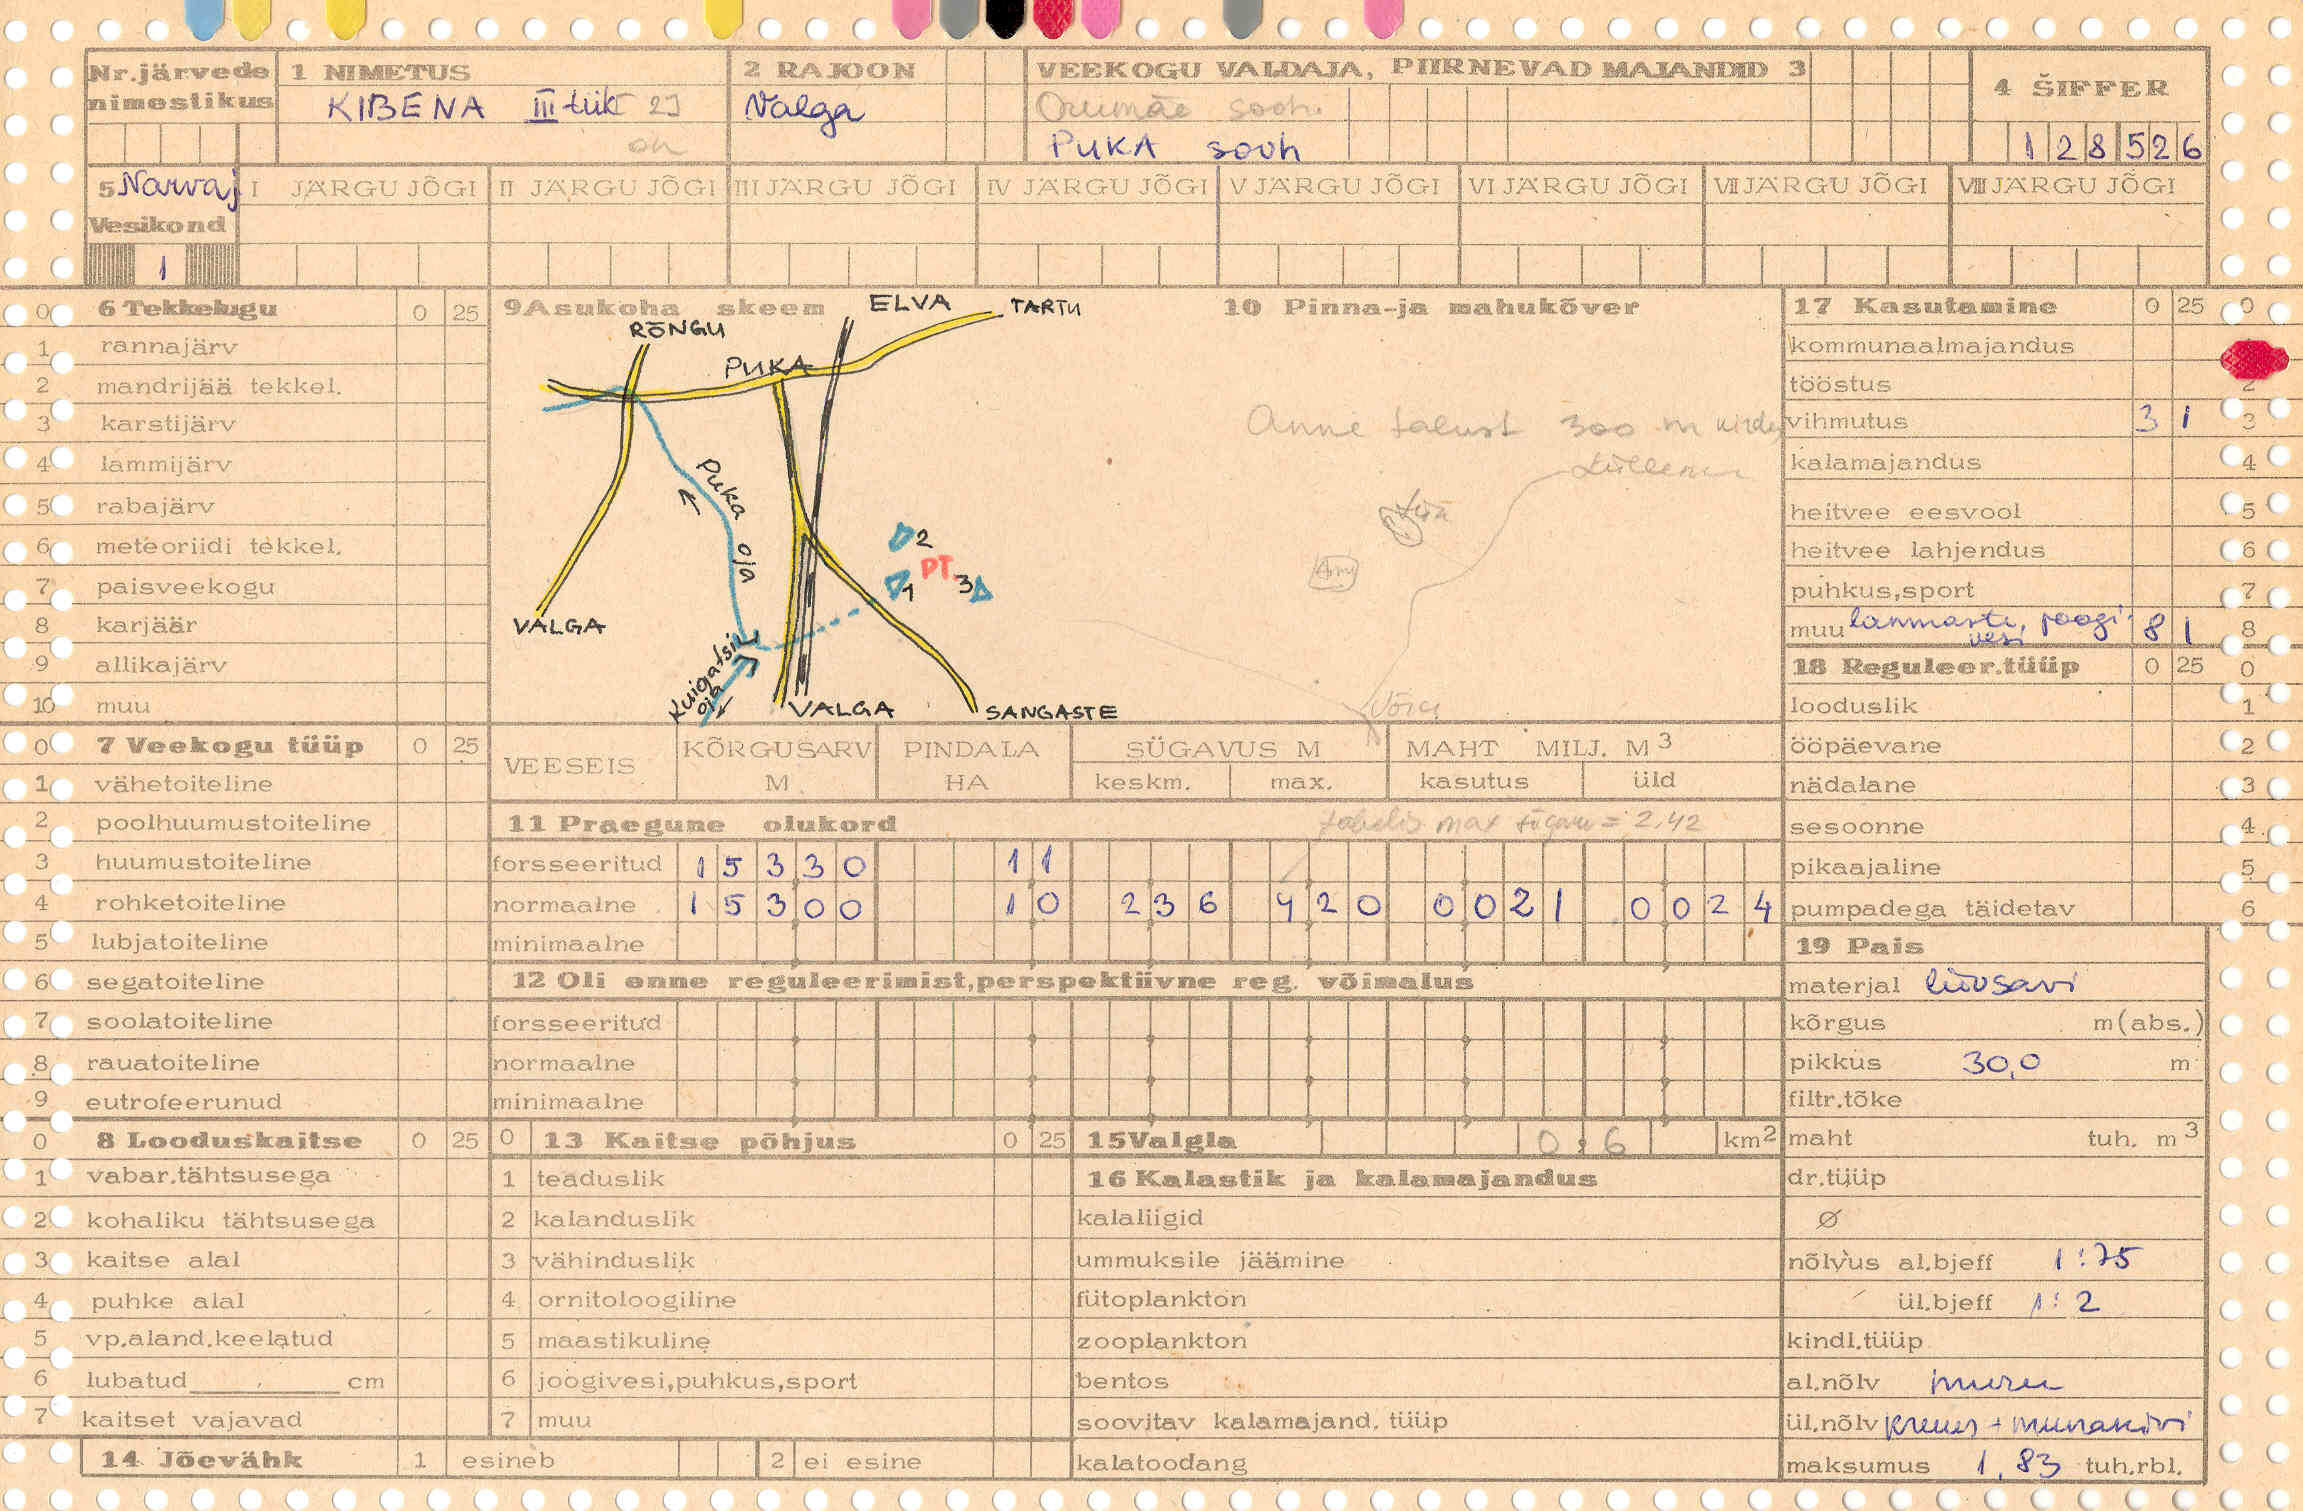 Nr.järvede nimestikus
1 NIMETUS
KIBENA III tiik [2]
on
2 RAJOON
Valga
VEEKOGU VALDAJA, PIIRNEVAD MAJANDID 3
Orumäe sovh.
PUKA sovh
4 ŠIFFER
1 2 8 5 2 6
5 Narvaj
Vesikond
1
I JÄRGU JÕGI
II JÄRGU JÕGI
III JÄRGU JÕGI
IV JÄRGU JÕGI
V JÄRGU JÕGI
VI JÄRGU JÕGI
VII JÄRGU JÕGI
VIII JÄRGU JÕGI
0 6 Tekkelugu 0 25
1 rannajärv
2 mandrijää tekkel.
3 karstijärv
4 lammijärv
5 rabajärv
6 meteoriidi tekkel.
7 paisveekogu
8 karjäär
9 allikajärv
10 muu
0 7 Veekogu tüüp 0 25
1 vähetoiteline
2 poolhuumustoiteline
3 huumustoiteline
4 rohketoiteline
5 lubjatoiteline
6 segatoiteline
7 soolatoiteline
8 rauatoiteline
9 eutrofeerunud
0 8 Looduskaitse 0 25
1 vabar.tähtsusega
2 kohaliku tähtsusega
3 kaitse alal
4 puhke alal
5 vp.aland.keelatud
6 lubatud cm
7 kaitset vajavad
14 Jõevähk 1 esineb 2 ei esine
9 Asukoha skeem
ELVA
TARTU
RÕNGU
PUKA
Puka oja
2
PT.
1
3
VALGA
Kuigatsi oja
VALGA
SANGASTE
10 Pinna-ja mahukõver
Anne talust 300 m kirdes
VEESEIS
KÕRGUSARV M
PINDALA HA
SÜGAVUS M
keskm. max.
MAHT MILJ. M3
kasutus üld
11 Praegune olukord
tabelis max sügavus = 2.42
forsseeritud 1 5 3 3 0 1 1
normaalne 1 5 3 0 0 1 0 2 3 6 4 2 0 0 0 2 1 0 0 2 4
minimaalne
12 Oli enne reguleerimist,perspektiivne reg. võimalus
forsseeritud
normaalne
minimaalne
0 13 Kaitse põhjus 0 25
1 teaduslik
2 kalanduslik
3 vähinduslik
4 ornitoloogiline
5 maastikuline
6 joogivesi,puhkus,sport
7 muu
15 Valgla 0,6 km2
16 Kalastik ja kalamajandus
kalaliigid
ummuksile jäämine
fütoplankton
zooplankton
bentos
soovitav kalamajand. tüüp
kalatoodang
17 Kasutamine 0 25 0
kommunaalmajandus
tööstus 2
vihmutus 3 1 3
kalamajandus 4
heitvee eesvool 5
heitvee lahjendus 6
puhkus,sport 7
muu loomaste, joogivesi 8 1 8
18 Reguleer.tüüp 0 25 0
looduslik 1
ööpäevane 2
nädalane 3
sesoonne 4
pikaajaline 5
pumpadega täidetav 6
19 Pais
materjal liivsavi
kõrgus m(abs.)
pikkus 30,0 m
filtr.tõke
maht tuh. m3
dr.tüüp
Ø
nõlvus al.bjeff 1:75
ül.bjeff 1:2
kindl.tüüp
al.nõlv muru
ül.nõlv kruus + munakivi
maksumus 1,83 tuh.rbl.